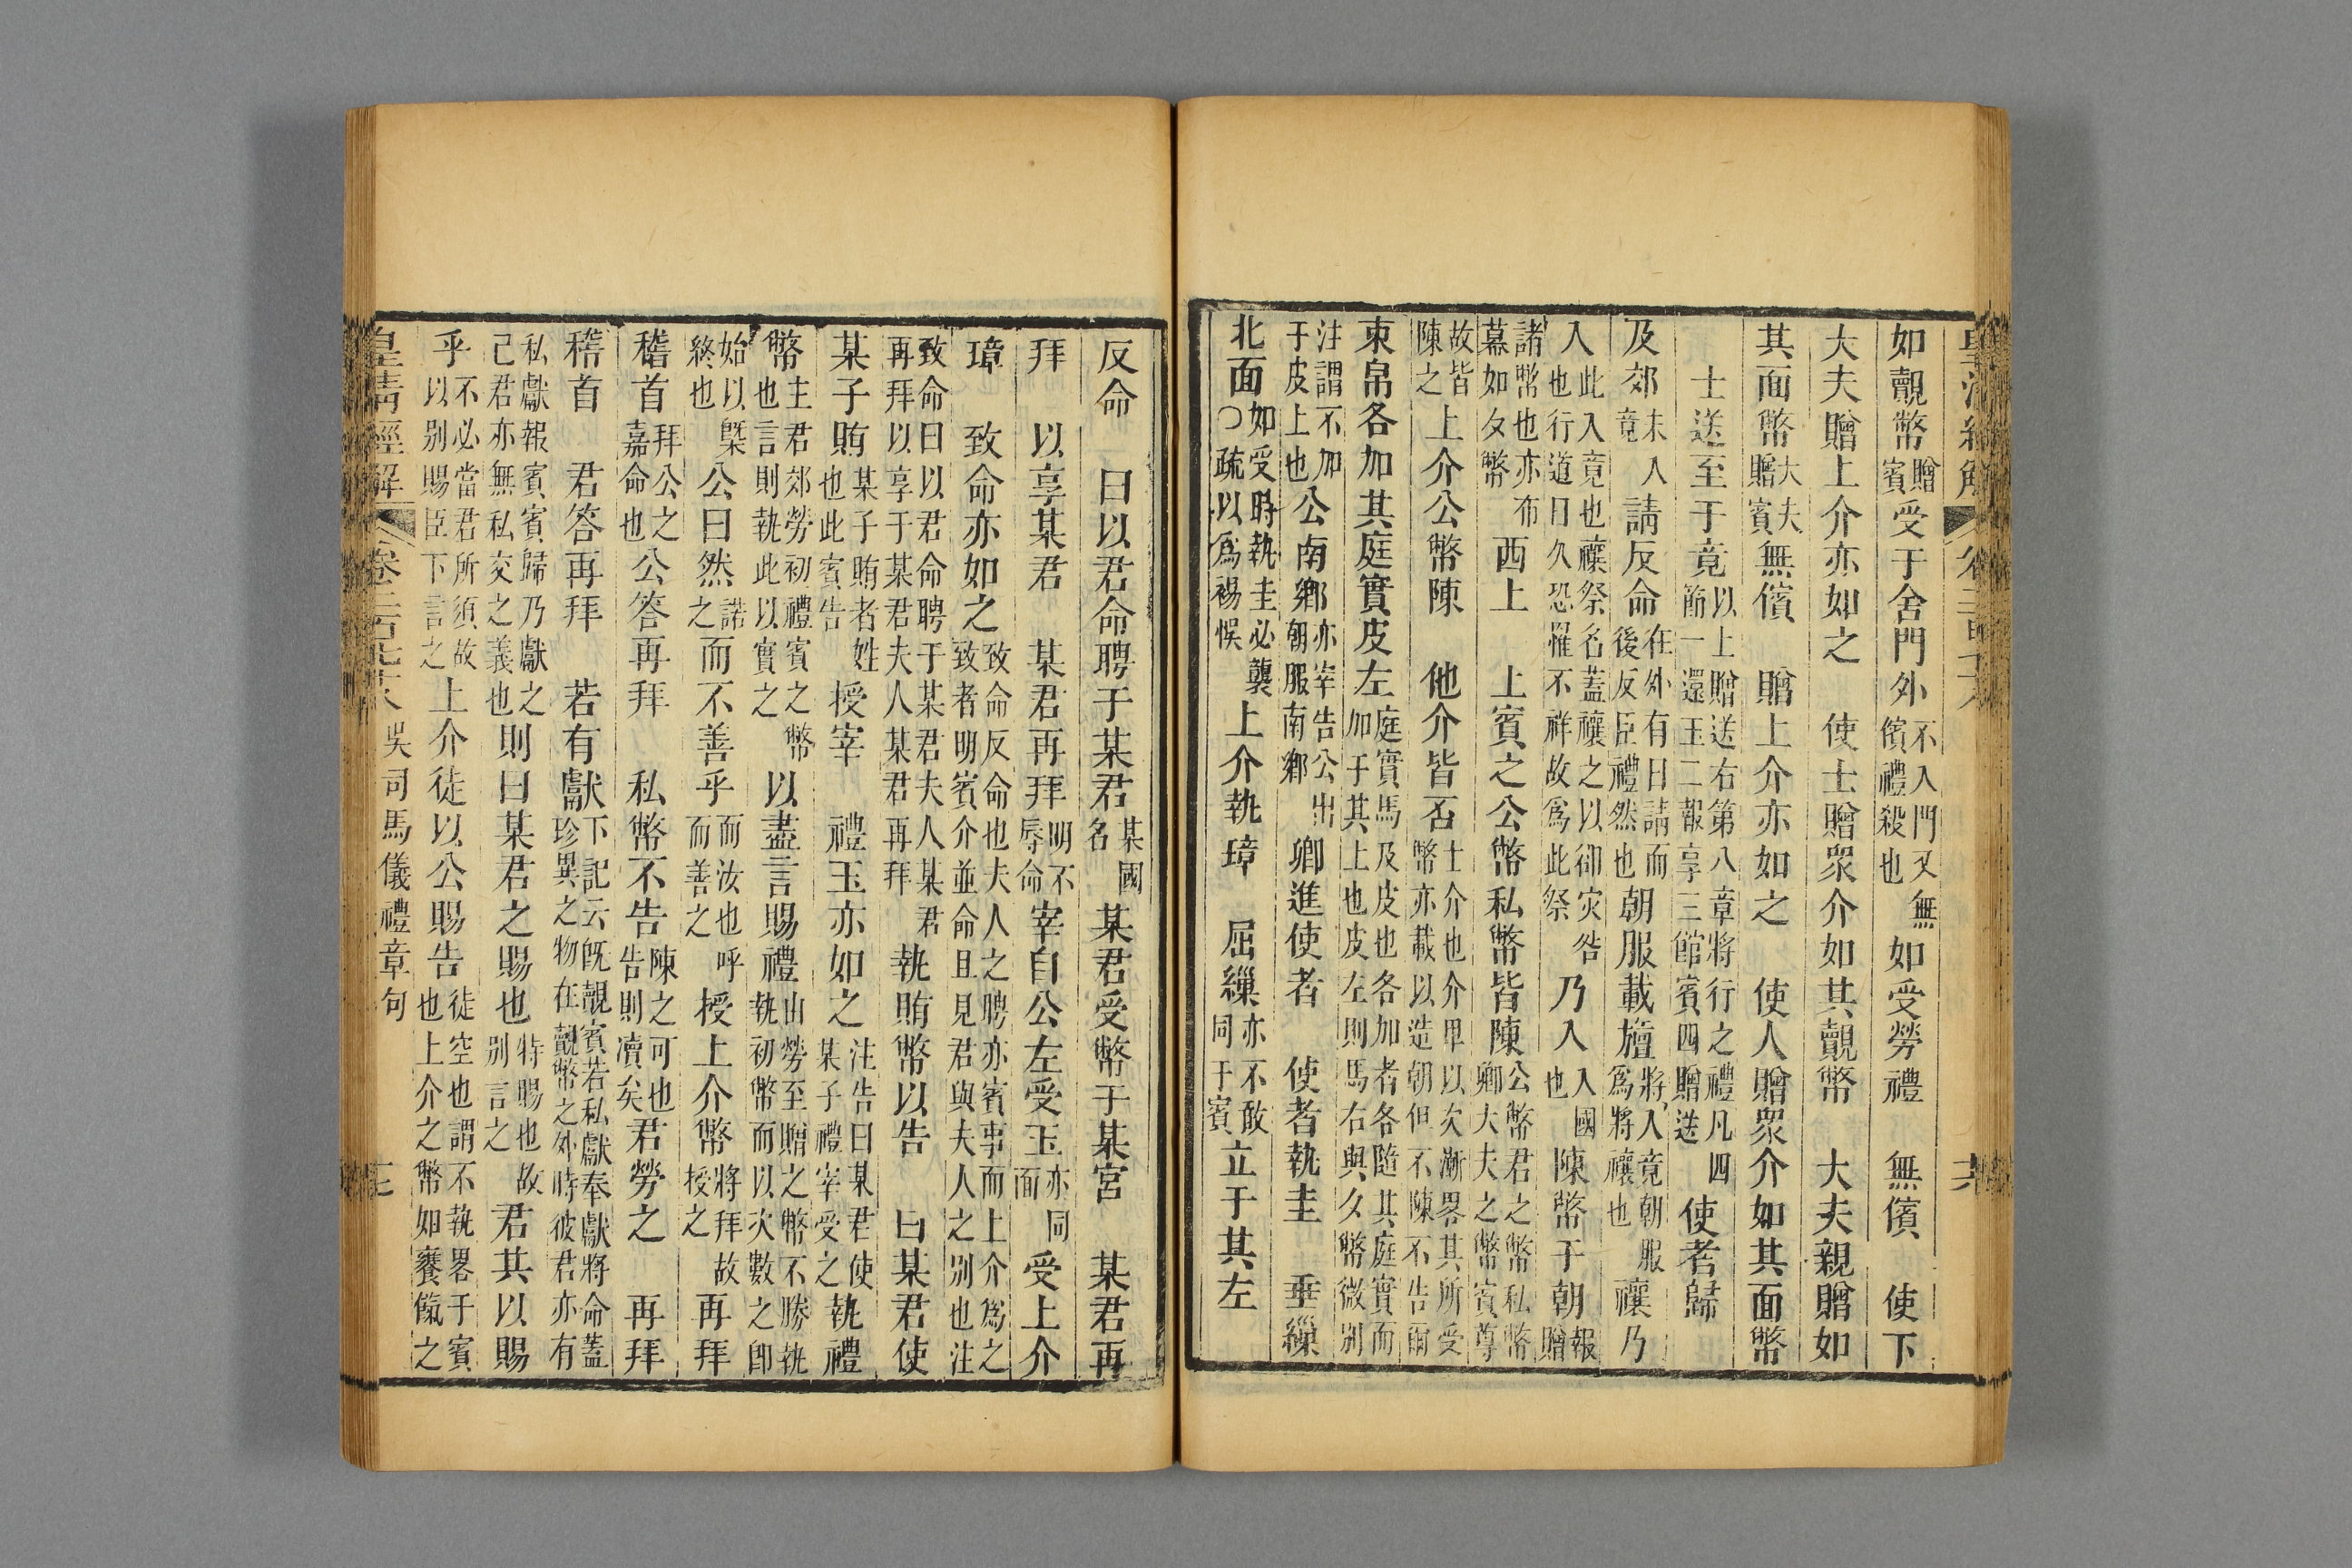 如覿幣贈賓受于舍門外不入門又無儐禮殺也如受勞禮　無儐　使下
大夫贈上介亦如之　使士贈眾介如其覿幣　大夫親贈如
其面幣大夫贈賓無儐　贈上介亦如之　使人贈眾介如其面幣
士送至于竟以上贈送右第八章將行之禮凡四節一還玉二報享三館賓四贈送使者歸
及郊未入竟請反命在外有日請而後反臣禮然也朝服載旜將入竟朝服爲將禳也禳乃
入此入竟也禳祭名蓋禳之以卻灾咎也行道日久恐罹不祥故爲此祭乃入入國也陳幣于朝報贈
諸幣也亦布幕如夕幣西上　上賓之公幣私幣皆陳公幣君之幣私幣卿大夫之幣賓尊
故皆陳之上介公幣陳　他介皆否士介也介卑以次漸畧其所受幣亦載以造朝但不陳不告爾
束帛各加其庭實皮左庭實馬及皮也各加者各隨其庭實而加于其上也皮左則馬右與夕幣微別
注謂不加于皮上也公南鄉亦宰告公出朝服南鄉卿進使者　使者執圭　垂繅
北面如受時執圭必襲〇疏以爲裼悞上介執璋　屈繅亦不敢同于賓立于其左
反命　曰以君命聘于某君某國名某君受幣于某宮　某君再
拜　以享某君　某君再拜明不辱命宰自公左受玉亦同面受上介
璋　致命亦如之致命反命也夫人之聘亦賓事而上介爲之致者明賓介並命且見君與夫人之別也注
致命曰以君命聘于某君夫人某君再拜以享于某君夫人某君再拜執賄幣以告　曰某君使
某子賄某子賄者姓也此賓告授宰　禮玉亦如之注告曰某君使某子禮宰受之執禮
幣主君郊勞初禮賓之幣也言則執此以實之以盡言賜禮由勞至贈之幣不勝執執初幣而以次數之卽
始以槩終也公曰然諾之而不善乎而汝也呼而善之授上介幣將拜故授之再拜
稽首拜公之嘉命也公答再拜　私幣不告陳之可也告則瀆矣君勞之　再拜
稽首　君答再拜　若有獻下記云旣覿賓若私獻奉獻將命蓋珍異之物在覿幣之外時彼君亦有
私獻報賓賓歸乃獻之己君亦無私交之義也則曰某君之賜也特賜也故別言之君其以賜
乎不必當君所須故以別賜臣下言之上介徒以公賜告徒空也謂不執畧于賓也上介之幣如饔餼之
皇清經解　吳司馬儀禮章句